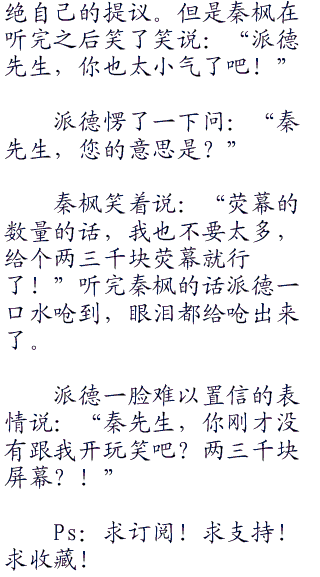 绝自己的提议。但是秦枫在
听完之后笑了笑说：“派德
先生，你也太小气了吧！”
派德愣了一下问：“秦
先生，您的意思是？”
秦枫笑着说：“荧幕的
数量的话，我也不要太多，
给个两三千块荧幕就行
了！”听完秦枫的话派德一
口水呛到，眼泪都给呛出来
了。
派德一脸难以置信的表
情说：“秦先生，你刚才没
有跟我开玩笑吧？两三千块
屏幕？！”
Ps：求订阅！求支持！
求收藏！